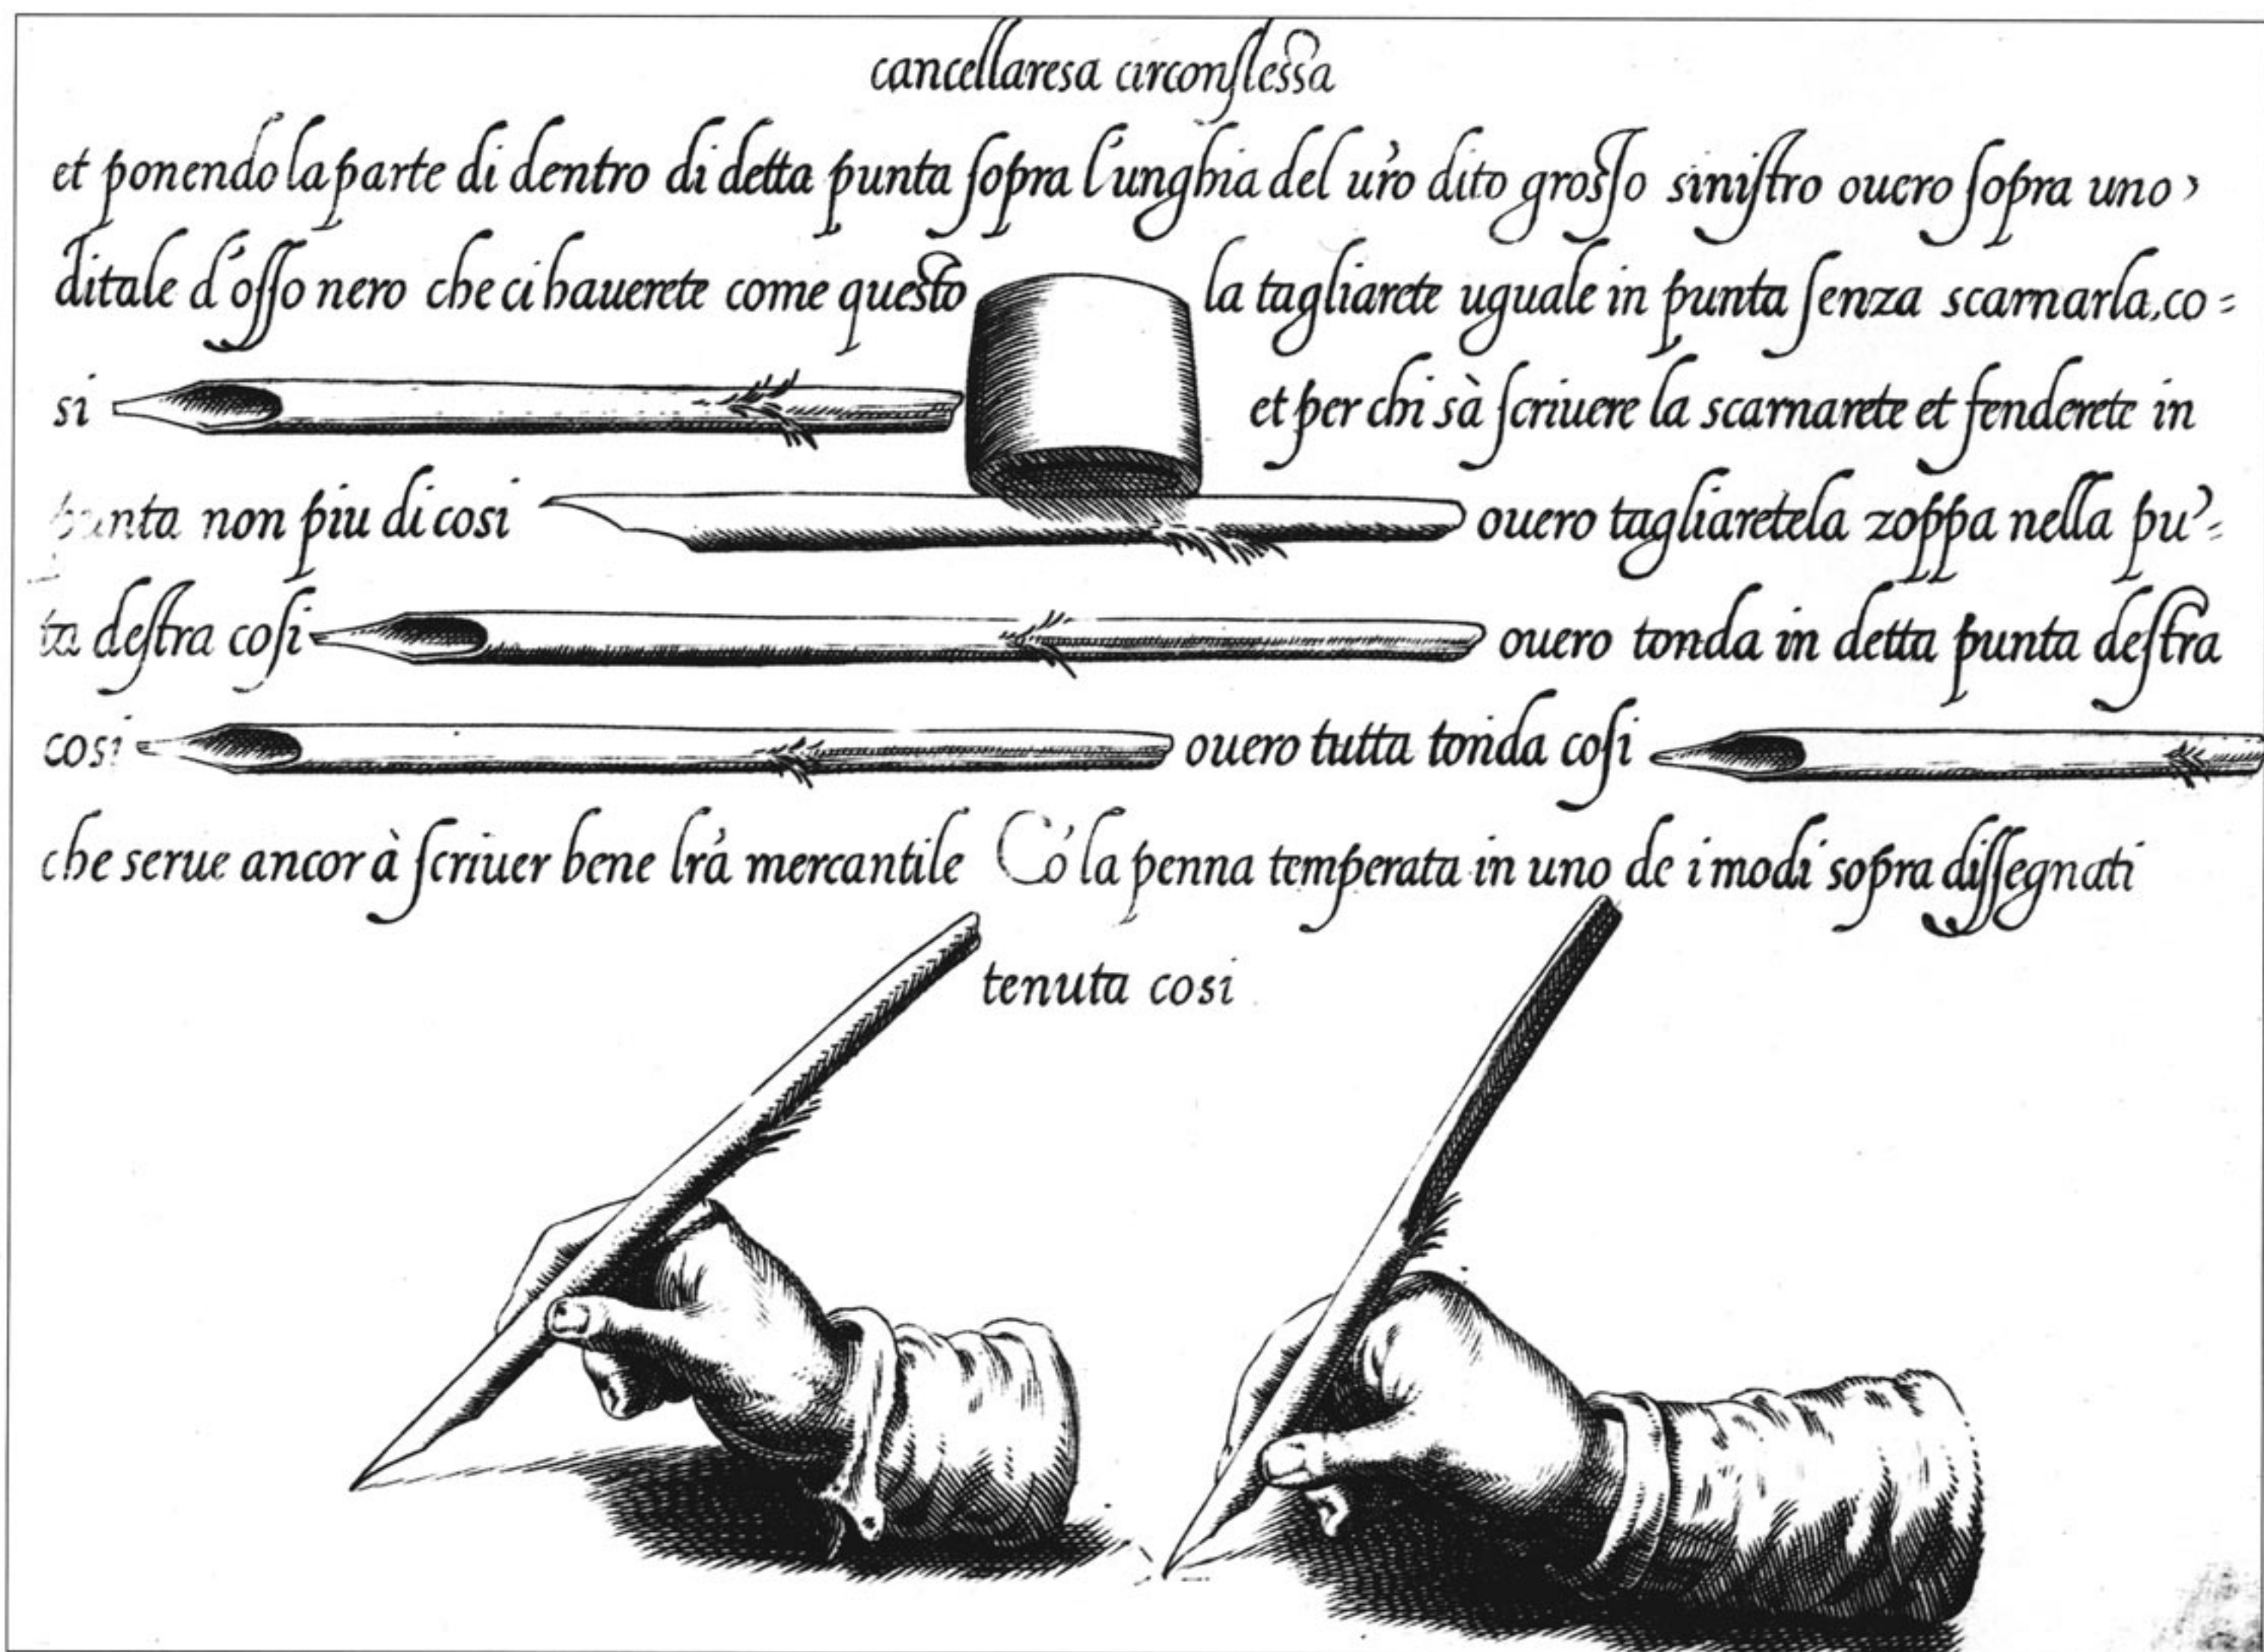 cancellaresa circonflessa
et ponendo la parte di dentro di detta punta sopra l'unghia del uro dito grosso sinistro ouero sopra uno
ditale d'osso nero che ci hauerete come questo la tagliarete uguale in punta senza scarnarla, co=
si et per chi sà scriuere la scarnarete et fenderete in
punta non piu di cosi ouero tagliaretela zoppa nella pu'=
ta destra cosi ouero tonda in detta punta destra
cosi ouero tutta tonda cosi
che serue ancor à scriuer bene lrà mercantile Co' la penna temperata in uno de i modi sopra dissegnati
tenuta cosi